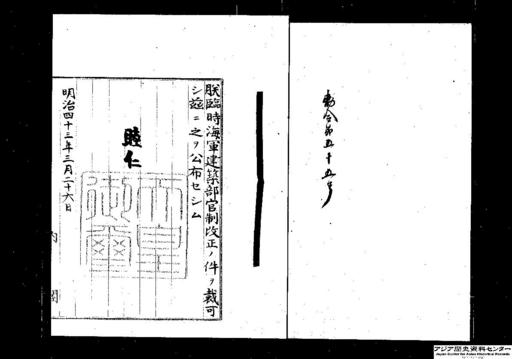 勅令第五十五号
朕臨時海軍建築部官制改正ノ件ヲ裁可
シ茲ニ之ヲ公布セシム
睦仁
天皇御璽
明治四十三年三月二十六日
内閣
アジア歴史資料センター
Japan Center for Asian Historical Records